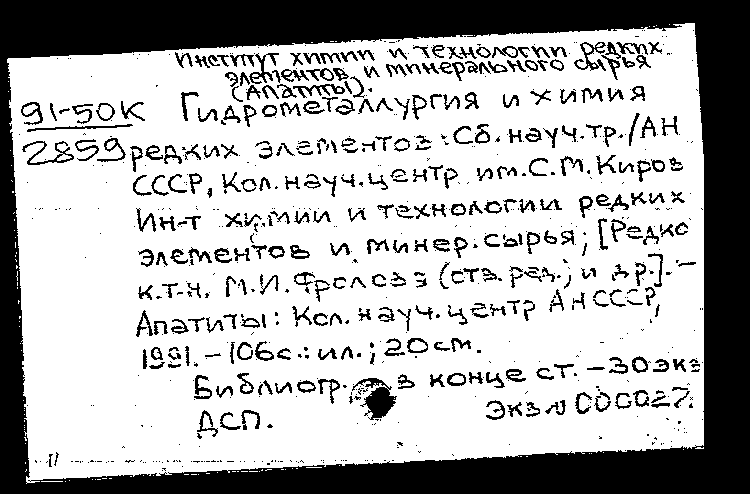 Институт химии и технологии редких
элементов и минерального сырья
(Апатиты).
91-50К Гидрометаллургия и химия
2859 редких элементов: Сб. науч. тр./АН
СССР, Кол. науч. центр им. С.М. Киров
Ин-т химии и технологии редких
элементов и минер. сырья; [Редко
к.т.н. М.И. Фролова (отв. ред.) и др.]. –
Апатиты: Кол. науч. центр АН СССР,
1991. – 106с.: ил.; 20см.
Библиогр. в конце ст. – 30экз
ДСП. Экз № 000027.